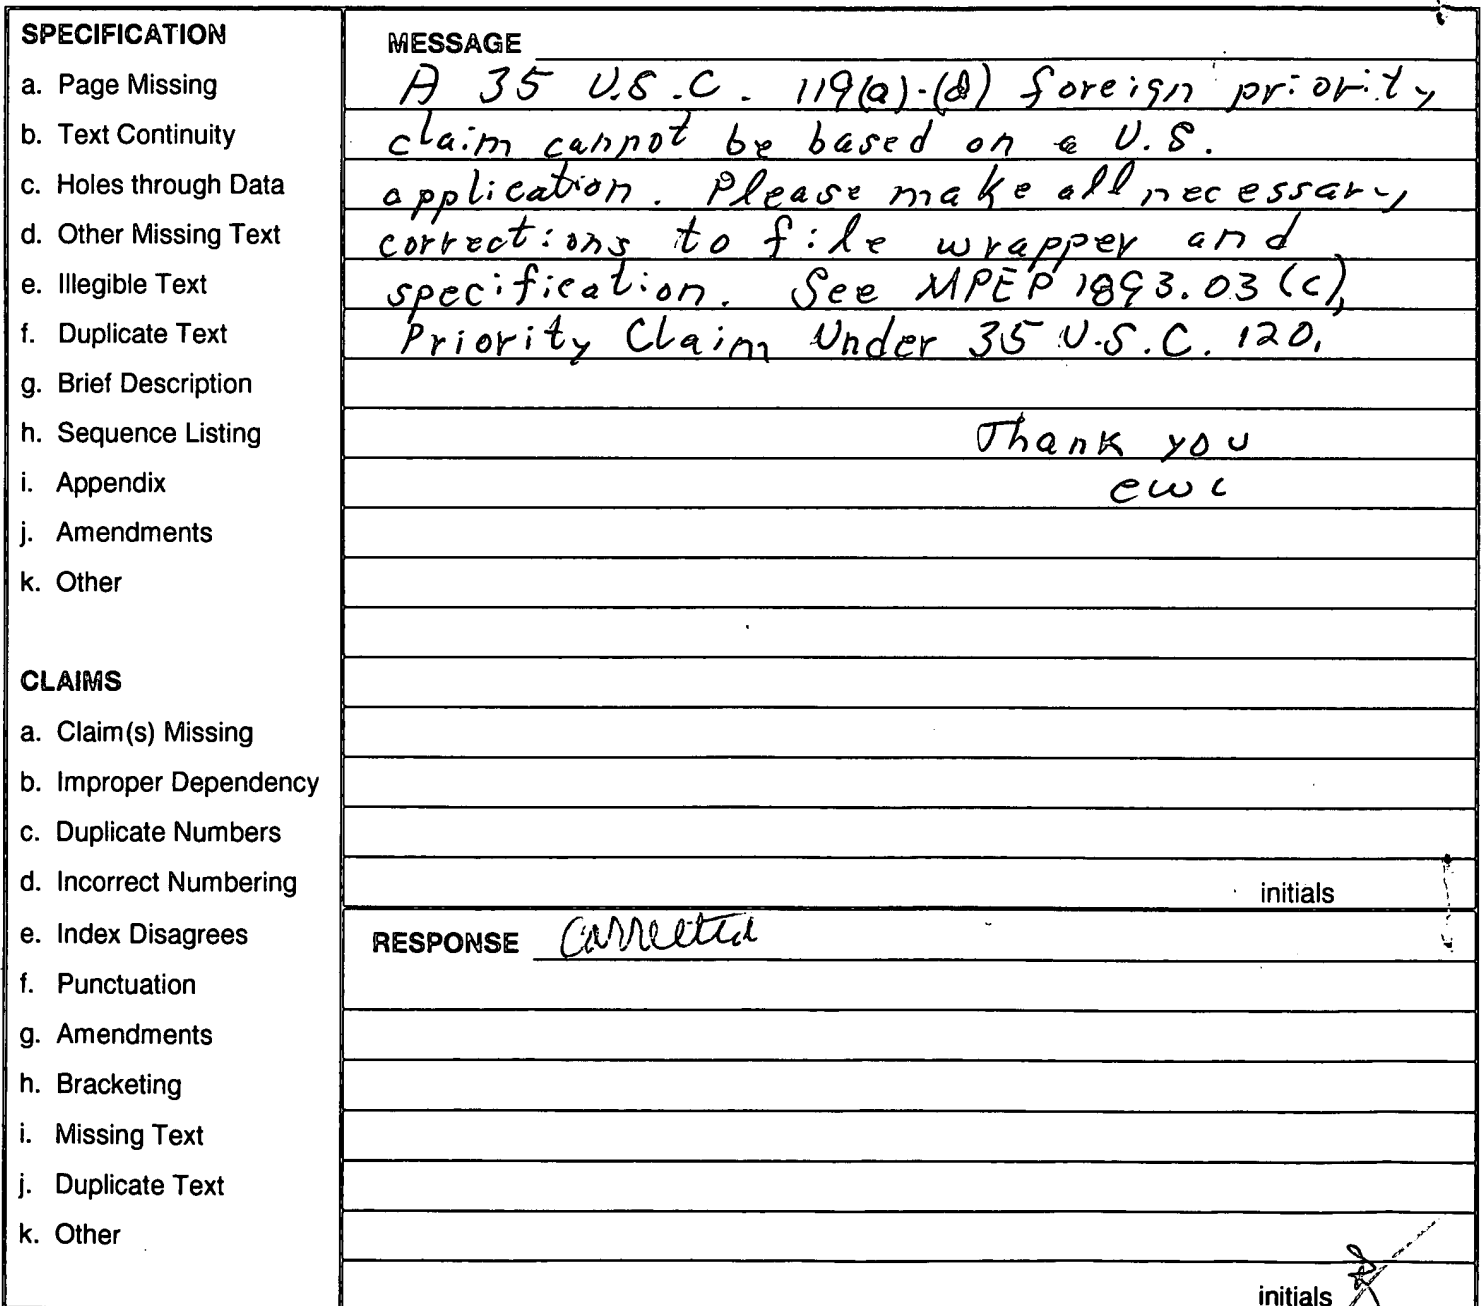 SPECIFICATION
a. Page Missing
b. Text Continuity
c. Holes through Data
d. Other Missing Text
e. Illegible Text
f. Duplicate Text
g. Brief Description
h. Sequence Listing
i. Appendix
j. Amendments
k. Other
CLAIMS
a. Claim(s) Missing
b. Improper Dependency
c. Duplicate Numbers
d. Incorrect Numbering
e. Index Disagrees
f. Punctuation
g. Amendments
h. Bracketing
i. Missing Text
j. Duplicate Text
k. Other
MESSAGE
A 35 U.S.C. 119(a)-(d) foreign priority
claim cannot be based on a U.S.
application. Please make all necessary
corrections to file wrapper and
specification. See MPEP 1893.03(c),
Priority Claim Under 35 U.S.C. 120.
Thank you
ewc
initials
RESPONSE Corrected
initials